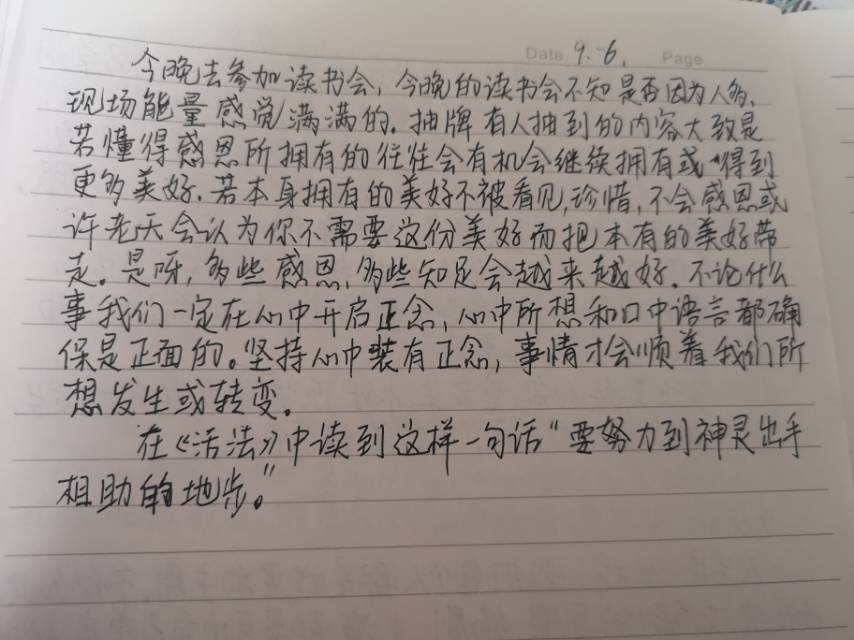 Date 9.6. Page
今晚去参加读书会，今晚的读书会不知是否因为人多，
现场能量感觉满满的。抽牌有人抽到的内容大致是
若懂得感恩所拥有的往往会有机会继续拥有或得到
更多美好。若本身拥有的美好不被看见，珍惜，不会感恩或
许老天会认为你不需要这份美好而把本有的美好带
走。是呀，多些感恩，多些知足会越来越好。不论什么
事我们一定在心中开启正念，心中所想和口中语言都确
保是正面的。坚持心中装有正念，事情才会顺着我们所
想发生或转变。
在《活法》中读到这样一句话“要努力到神灵出手
相助的地步。”